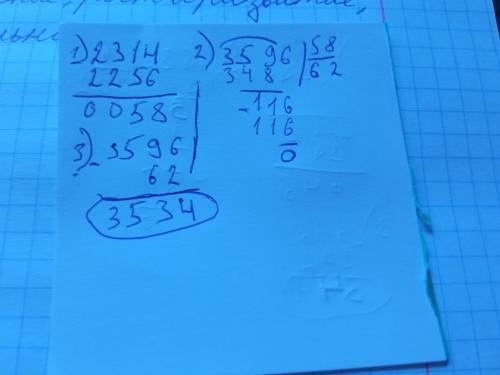 1) 2314
2256
0058
2) 3596 | 58
348 | 62
-116
116
0
3) - 3596
62
3534